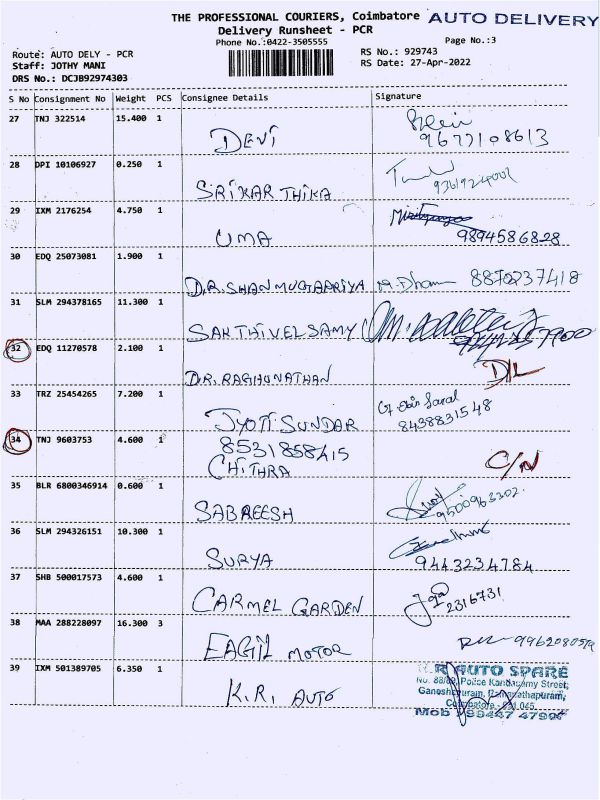 THE PROFESSIONAL COURIERS, Coimbatore AUTO DELIVERY
Delivery Runsheet - PCR
Phone No.:0422-3505555 Page No.:3
Route: AUTO DELY - PCR RS No.: 929743
Staff: JOTHY MANI RS Date: 27-Apr-2022
DRS No.: DCJB92974303
S No Consignment No Weight PCS Consignee Details Signature
27 TNJ 322514 15.400 1
DEVI 9677108613
28 DPI 10106927 0.250 1
SRIKAR THIKA
29 IXM 2176254 4.750 1
UMA 9894586828
30 EDQ 25073081 1.900 1
D.R. SHANMUGAPRIYA M. Dham 8870237418
31 SLM 294378165 11.300 1
SAKTHIVELSAMY
32 EDQ 11270578 2.100 1
DR. RAGHUNATHAN D/L
33 TRZ 25454265 7.200 1
JYOTI SUNDAR 8438831548
34 TNJ 9603753 4.600 1
8531858415
CHITHRA C/N
35 BLR 6800346914 0.600 1
SABREESH 9500963302
36 SLM 294326151 10.300 1
SURYA 9443234784
37 SHB 500017573 4.600 1
CARMEL GARDEN 2316731
38 MAA 288228097 16.300 3
EAGIL MOTOR
39 IXM 501389705 6.350 1
K.R. AUTO
K.R AUTO SPARE
No. 88/89, Police Kandasamy Street,
Ganeshapuram, Ramanathapuram,
Coimbatore - 641 045.
Mob : 99447 47994